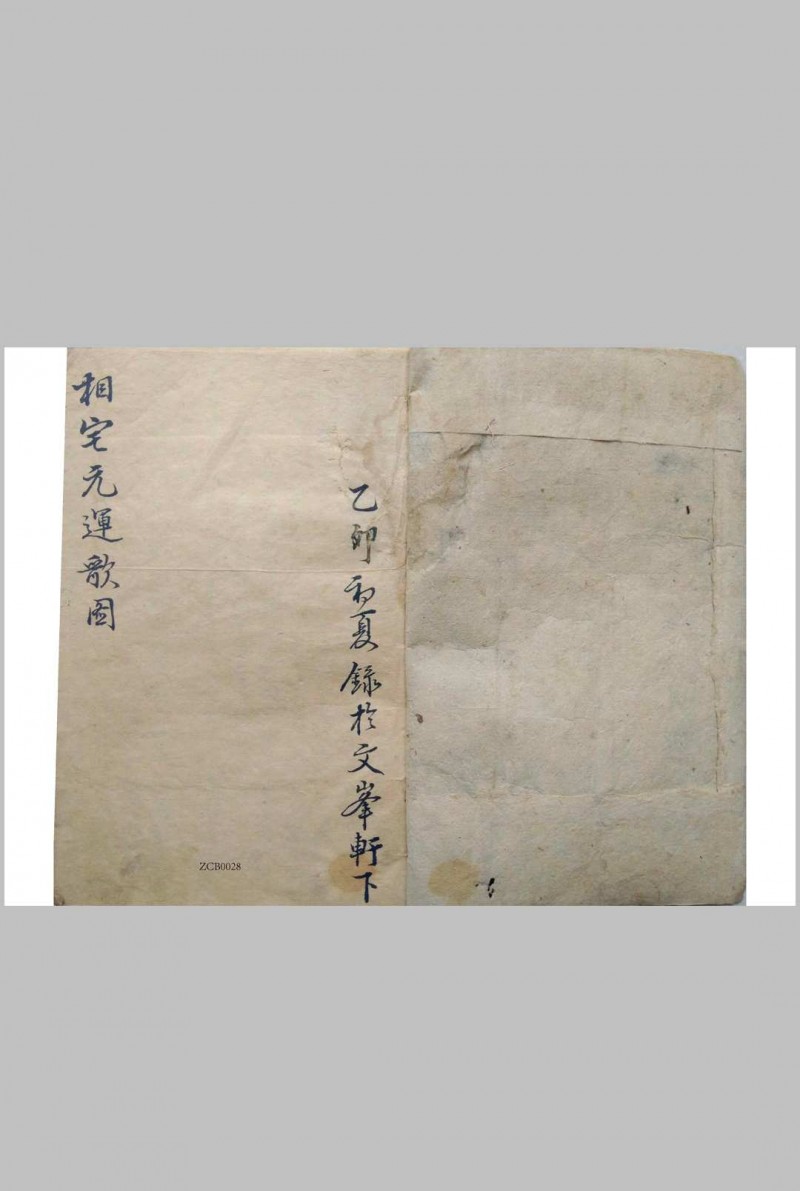 乙卯初夏錄於文峯軒下
相宅元運歌图
ZCB0028